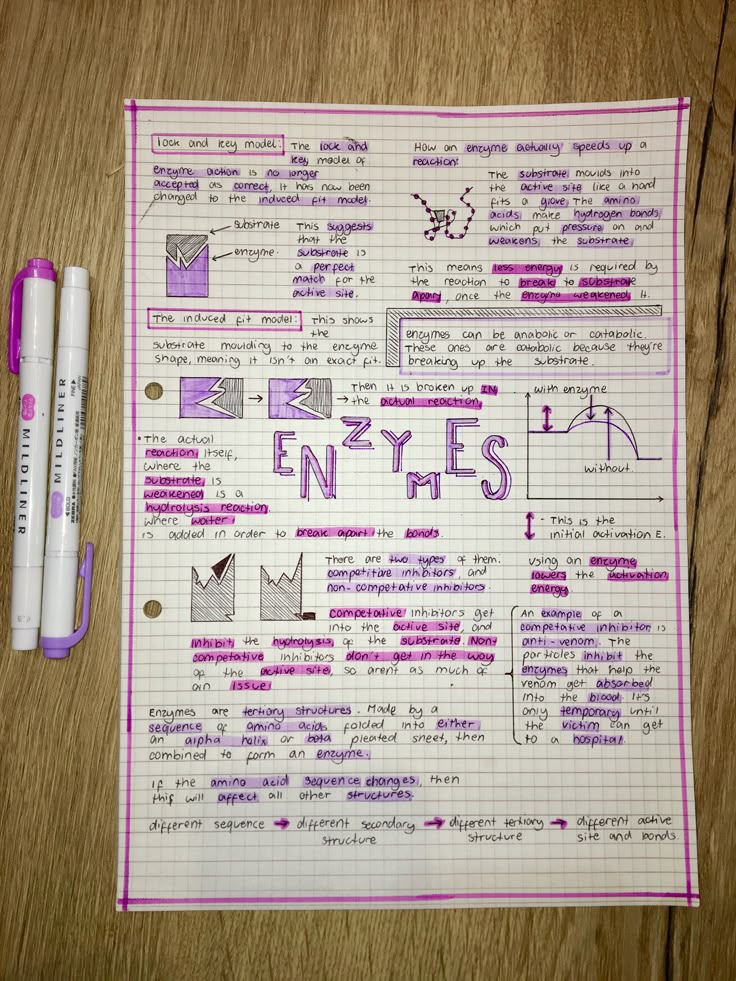 lock and key model: The lock and
key model of
enzyme action is no longer
accepted as correct, it has now been
changed to the induced fit model.
substrate
enzyme.
This suggests
that the
substrate is
a perfect
match for the
active site.
How an enzyme actually speeds up a
reaction:
The substrate moulds into
the active site like a hand
fits a glove, The amino
acids make hydrogen bonds,
which put pressure on and
weakens the substrate,
This means less energy is required by
the reaction to break to substrate
apart, once the enzyme weakened it.
The induced fit model: This shows
the
substrate moulding to the enzyme
shape, meaning it isn't an exact fit.
enzymes can be anabolic or catabolic.
These ones are catabolic because they're
breaking up the substrate.
Then it is broken up IN
the actual reaction.
with enzyme
without.
ENZYMES
• The actual
reaction itself,
where the
substrate is
weakened is a
hydrolysis reaction.
where water
is added in order to break apart the bonds.
- This is the
initial activation E.
using an enzyme
lowers the activation
energy
There are two types of them.
competitive inhibitors, and
non-competative inhibitors.
competative inhibitors get
into the active site, and
inhibit the hydrolysis of the substrate. Non-
competative inhibitors don't get in the way
of the active site, so arent as much of
an issue!
An example of a
competative inhibitor is
anti-venom. The
particles inhibit the
enzymes that help the
venom get absorbed
into the blood. It's
only temporary until
the victim can get
to a hospital.
Enzymes are tertiary structures. Made by a
sequence of amino acids folded into either,
an alpha helix or beta pleated sheet, then
combined to form an enzyme.
if the amino acid sequence changes, then
this will affect all other structures.
different sequence → different secondary structure → different tertiary structure → different active site and bonds.
MILDLINER
MILDLINER